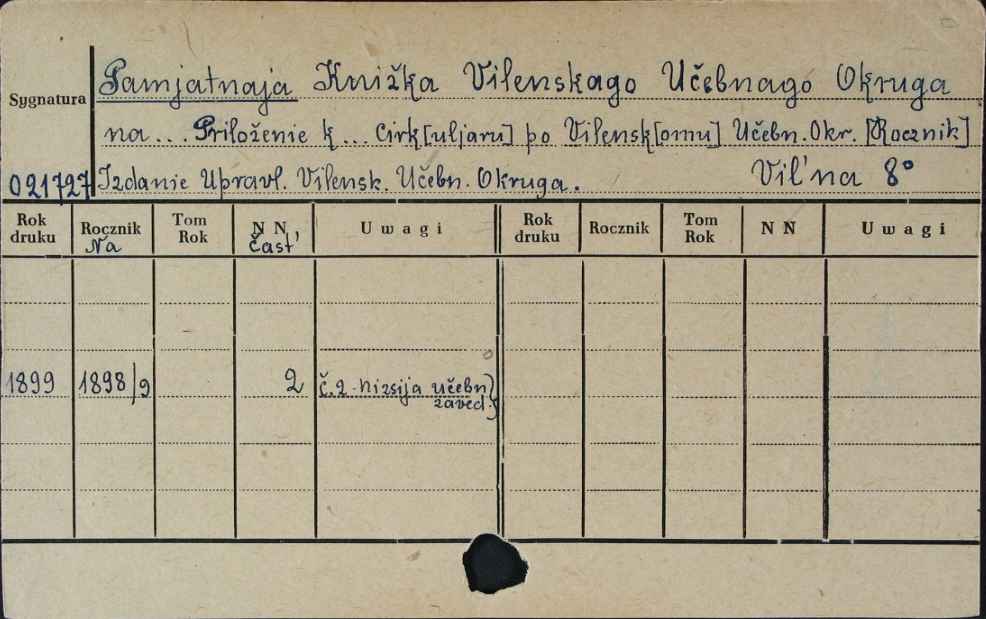 Pamjatnaja Knižka Vilenskago Učebnago Okruga
Sygnatura
na... Priloženie k... Cirk[uljaru] po Vilensk[omu] Učebn. Okr. [Rocznik]
021727 Izdanie Upravl. Vilensk. Učebn. Okruga. Vil'na 8°
Rok druku Rocznik Na Tom Rok N N Čast' Uwagi Rok druku Rocznik Tom Rok N N Uwagi
1899 1898/9 2 č.2 nizsija učebn
zaved.